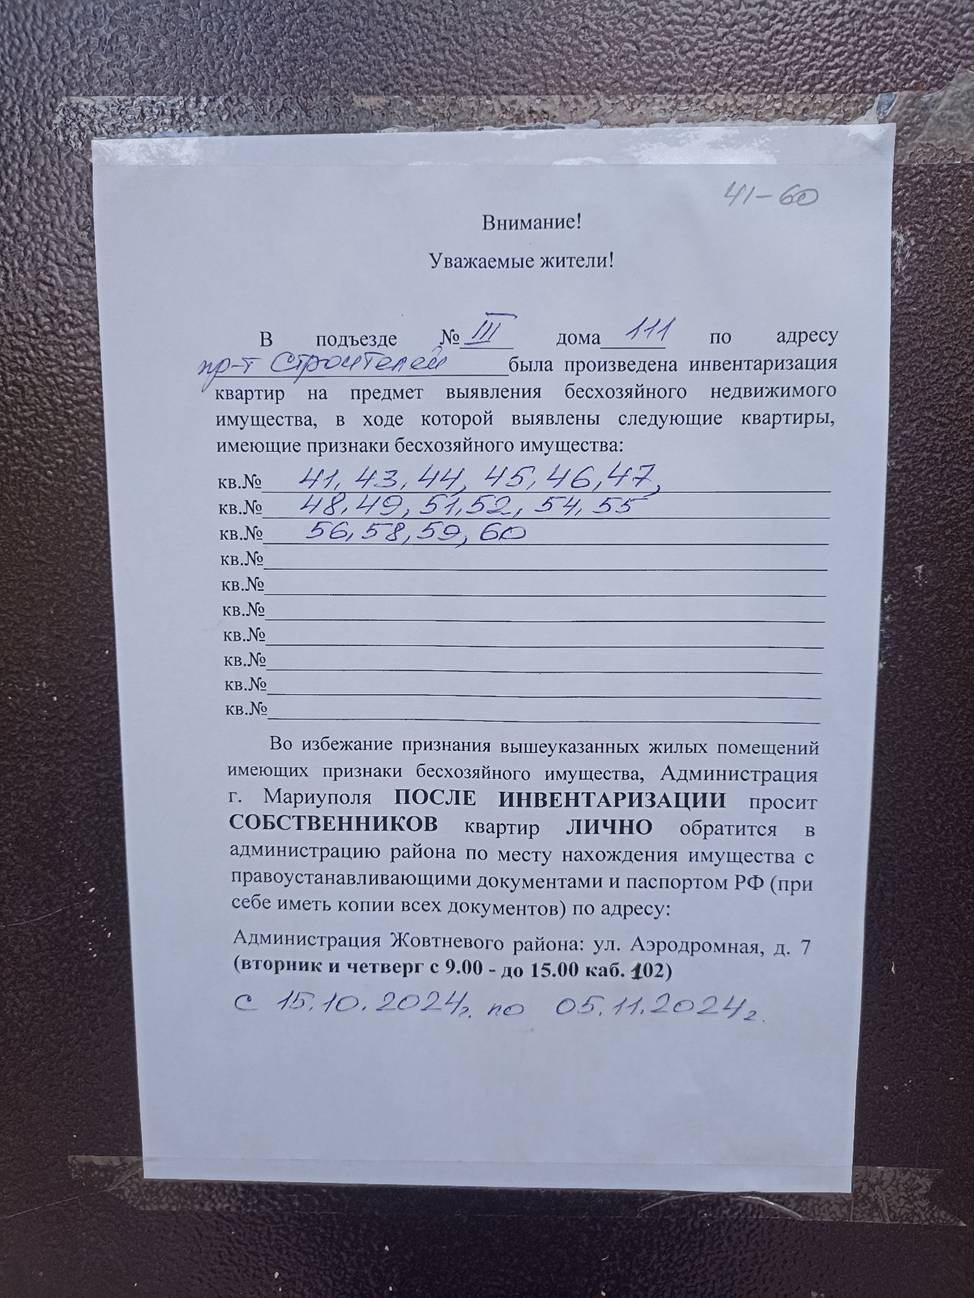 41-60
Внимание!
Уважаемые жители!
В подъезде № III дома 111 по адресу
пр-т Строителей была произведена инвентаризация
квартир на предмет выявления бесхозяйного недвижимого
имущества, в ходе которой выявлены следующие квартиры,
имеющие признаки бесхозяйного имущества:
кв.№ 41, 43, 44, 45, 46, 47,
кв.№ 48, 49, 51, 52, 54, 55
кв.№ 56, 58, 59, 60
кв.№
кв.№
кв.№
кв.№
кв.№
кв.№
кв.№
Во избежание признания вышеуказанных жилых помещений
имеющих признаки бесхозяйного имущества, Администрация
г. Мариуполя ПОСЛЕ ИНВЕНТАРИЗАЦИИ просит
СОБСТВЕННИКОВ квартир ЛИЧНО обратится в
администрацию района по месту нахождения имущества с
правоустанавливающими документами и паспортом РФ (при
себе иметь копии всех документов) по адресу:
Администрация Жовтневого района: ул. Аэродромная, д. 7
(вторник и четверг с 9.00 - до 15.00 каб. 102)
с 15.10.2024г. по 05.11.2024г.